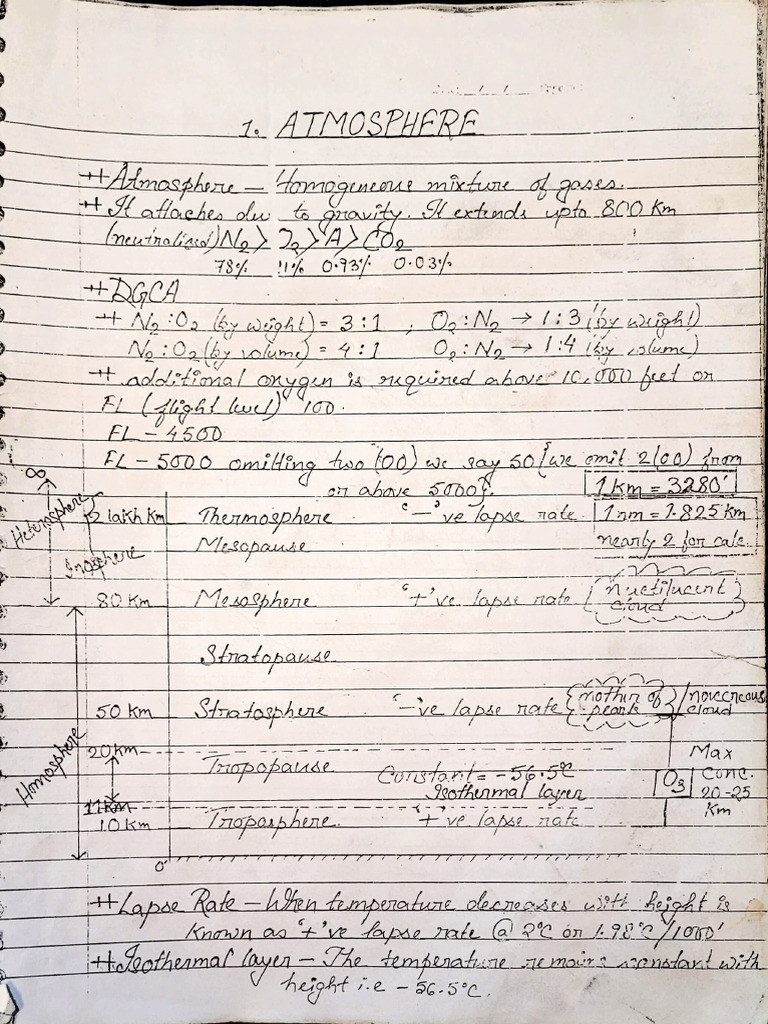 1. ATMOSPHERE
++ Atmosphere – Homogeneous mixture of gases.
++ It attaches du to gravity. It extends upto 800 Km
(neutralised) N2 > O2 > A > CO2
78% 0.93% 0.03%
++ DGCA
++ N2:O2 (by weight) = 3:1 , O2:N2 → 1:3 (by weight)
N2:O2 (by volume) = 4:1 O2:N2 → 1:4 (by volume)
++ additional oxygen is required above 10,000 feet or
FL (flight level) 100.
FL – 4500
FL – 5000 omitting two (00) we say 50 [we omit 2(00) from
or above 5000].
1 Km = 3280'
∞
Heterosphere
2 lakh Km Thermosphere '–'ve lapse rate
1 nm = 1.825 km
nearly 2 for calc.
Mesopause
80 Km Mesosphere '+'ve lapse rate
Nuctilucent
cloud
Stratopause
50 Km Stratosphere '–'ve lapse rate
mother of
pearls
cloud
Homosphere
20 Km
Tropopause Constant = -56.5°C
Isothermal layer
Max
O3 Conc.
20-25
Km
11 Km
10 Km Troposphere '+'ve lapse rate
0
++ Lapse Rate – When temperature decreases with height is
known as '+'ve lapse rate @ 2°C or 1.98°C/1000'
++ Isothermal layer – The temperature remains constant with
height i.e -56.5°C.